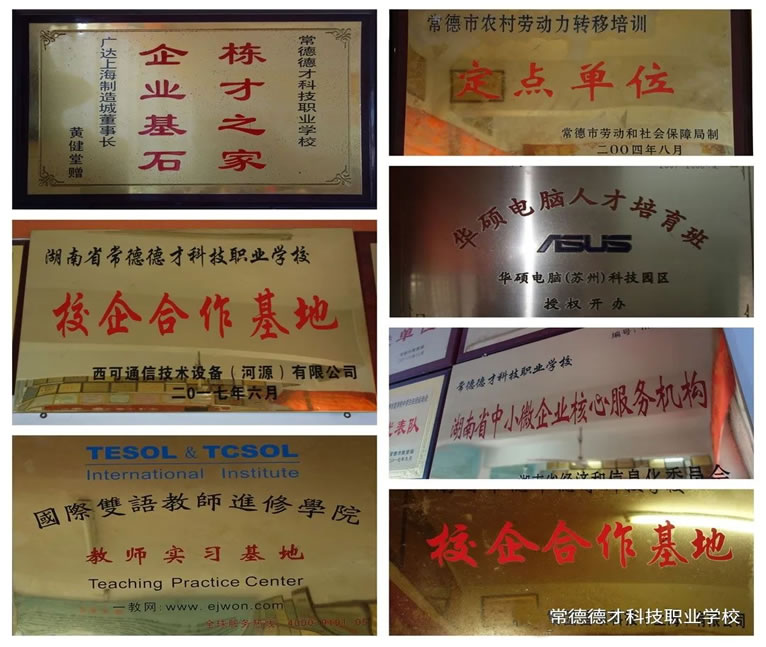 常德德才科技职业学校
栋才之家
企业基石
广达上海制造城董事长
黄健堂赠
湖南省常德德才科技职业学校
校企合作基地
西可通信技术设备（河源）有限公司
二〇一七年六月
TESOL & TCSOL
International Institute
國際雙語教師進修學院
教师实习基地
Teaching Practice Center
一教网: www.ejwon.com
常德市农村劳动力转移培训
定点单位
常德市劳动和社会保障局制
二〇〇四年八月
华硕电脑人才培育班
ASUS
华硕电脑(苏州)科技园区
授权开办
常德德才科技职业学校
湖南省中小微企业核心服务机构
湖南省经济和信息化委员会
校企合作基地
常德德才科技职业学校